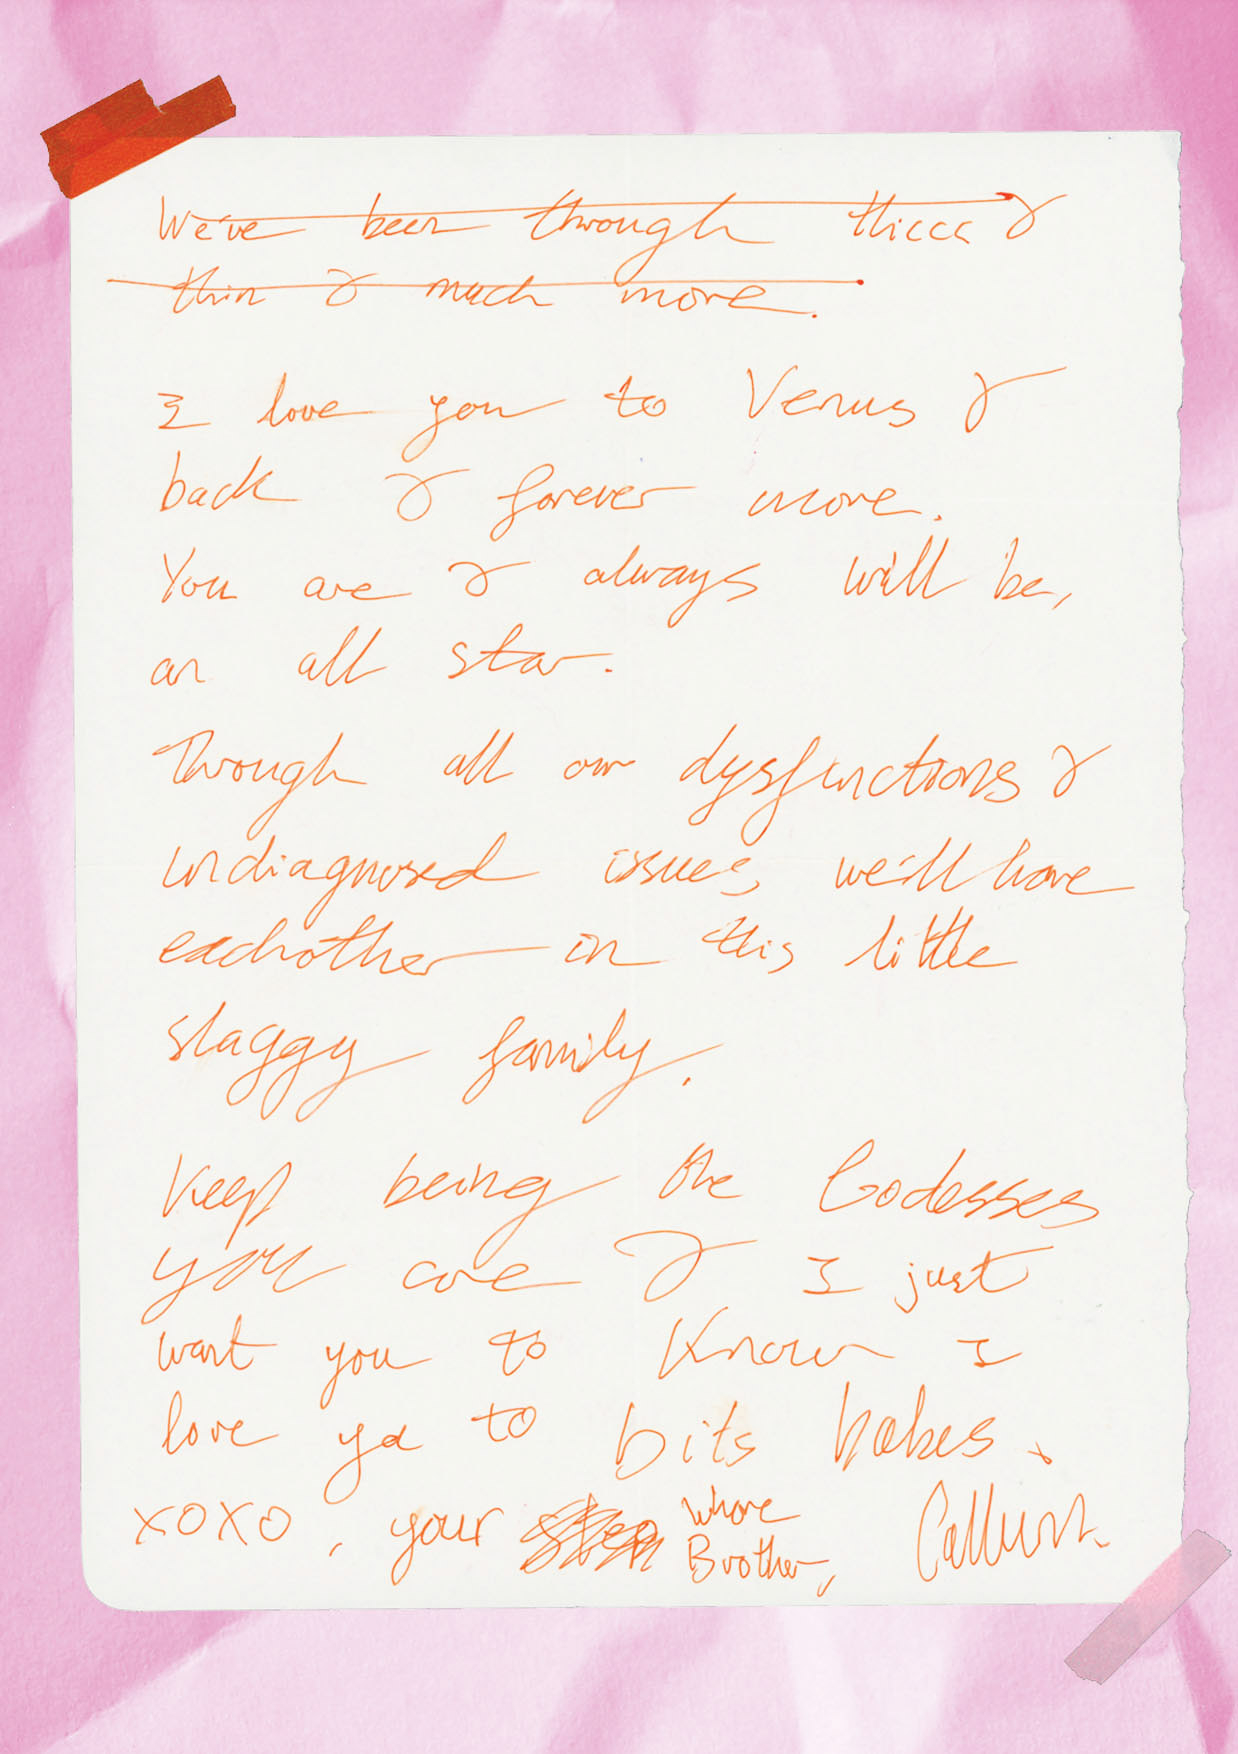 We've been through thiccc &
thin & much more.
I love you to Venus &
back & forever more.
You are & always will be,
an all star.
Through all our dysfunctions &
undiagnosed issues, we'll have
eachother in this little
slaggy family.
Keep being the Godesses
you are & I just
want you to know I
love ya to bits babes.
xoxo, your whore
Brother, Callum